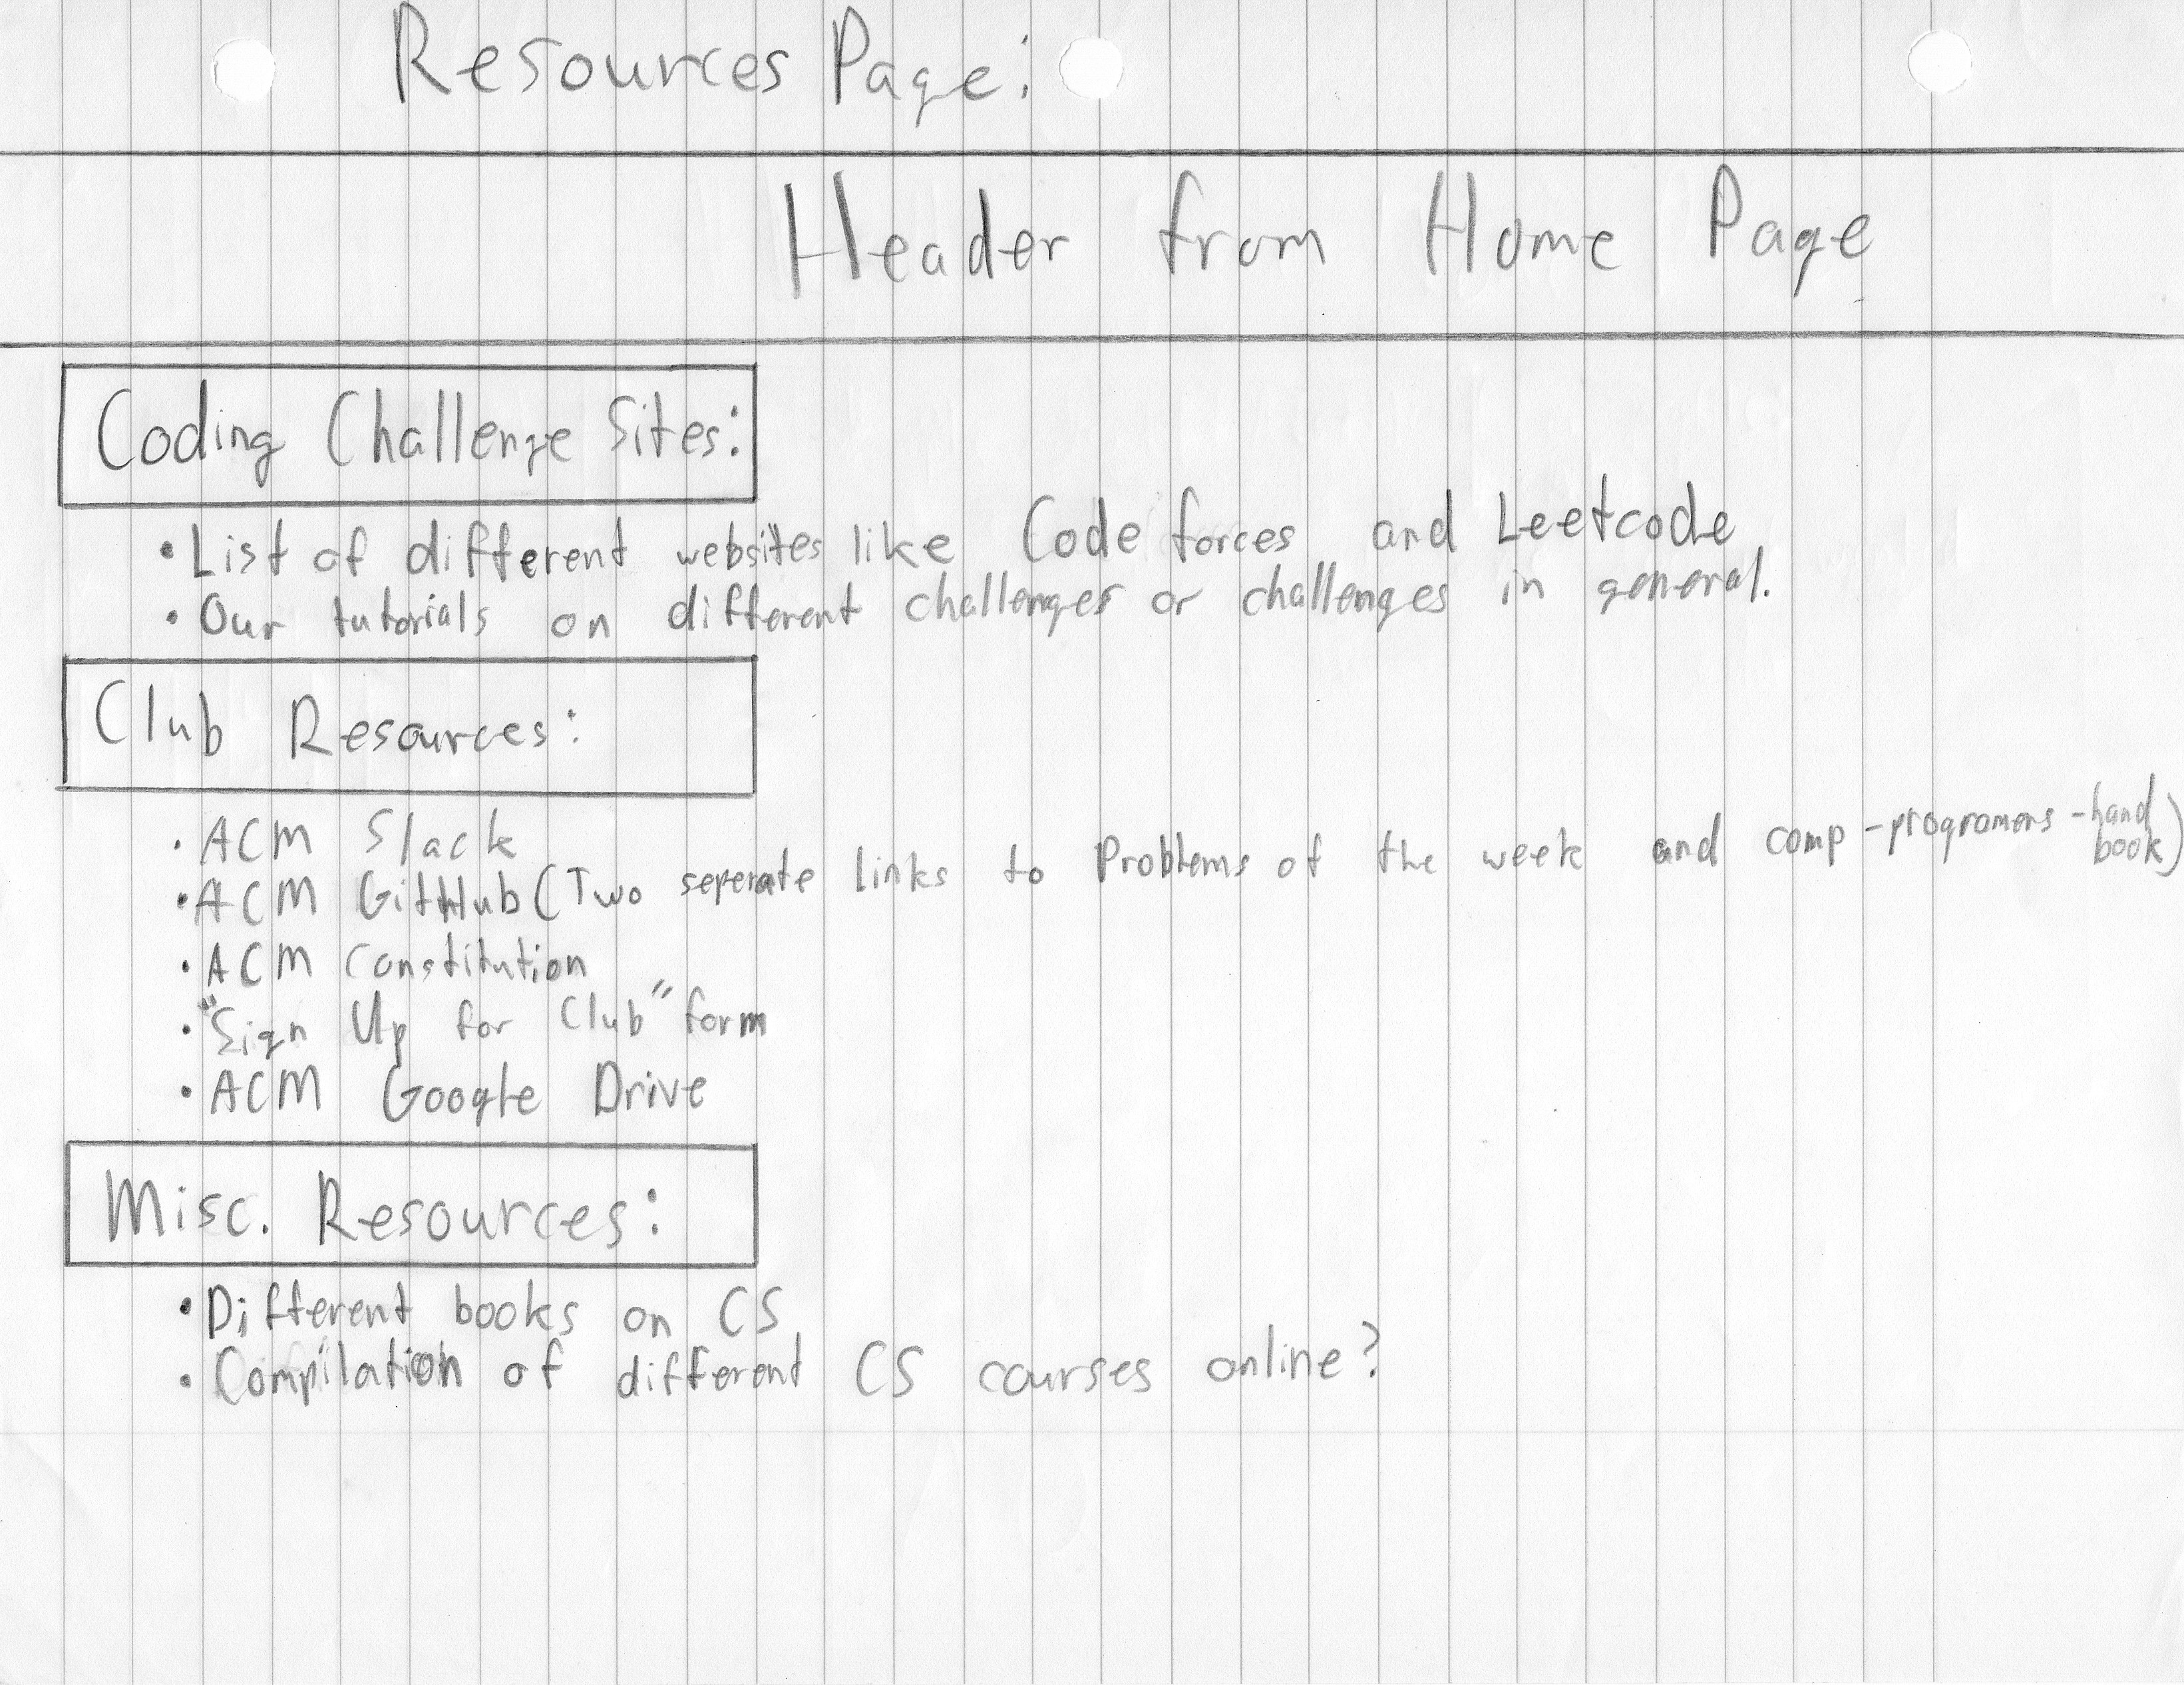 Resources Page:
Header from Home Page
Coding Challenge Sites:
• List of different websites like Code forces and Leetcode
• Our tutorials on different challenges or challenges in general.
Club Resources:
• ACM Slack
• ACM GitHub (Two seperate links to Problems of the week and comp-progromers-hand
book)
• ACM Constitution
• "Sign Up for Club" form
• ACM Google Drive
Misc. Resources:
• Different books on CS
• Compilation of different CS courses online?